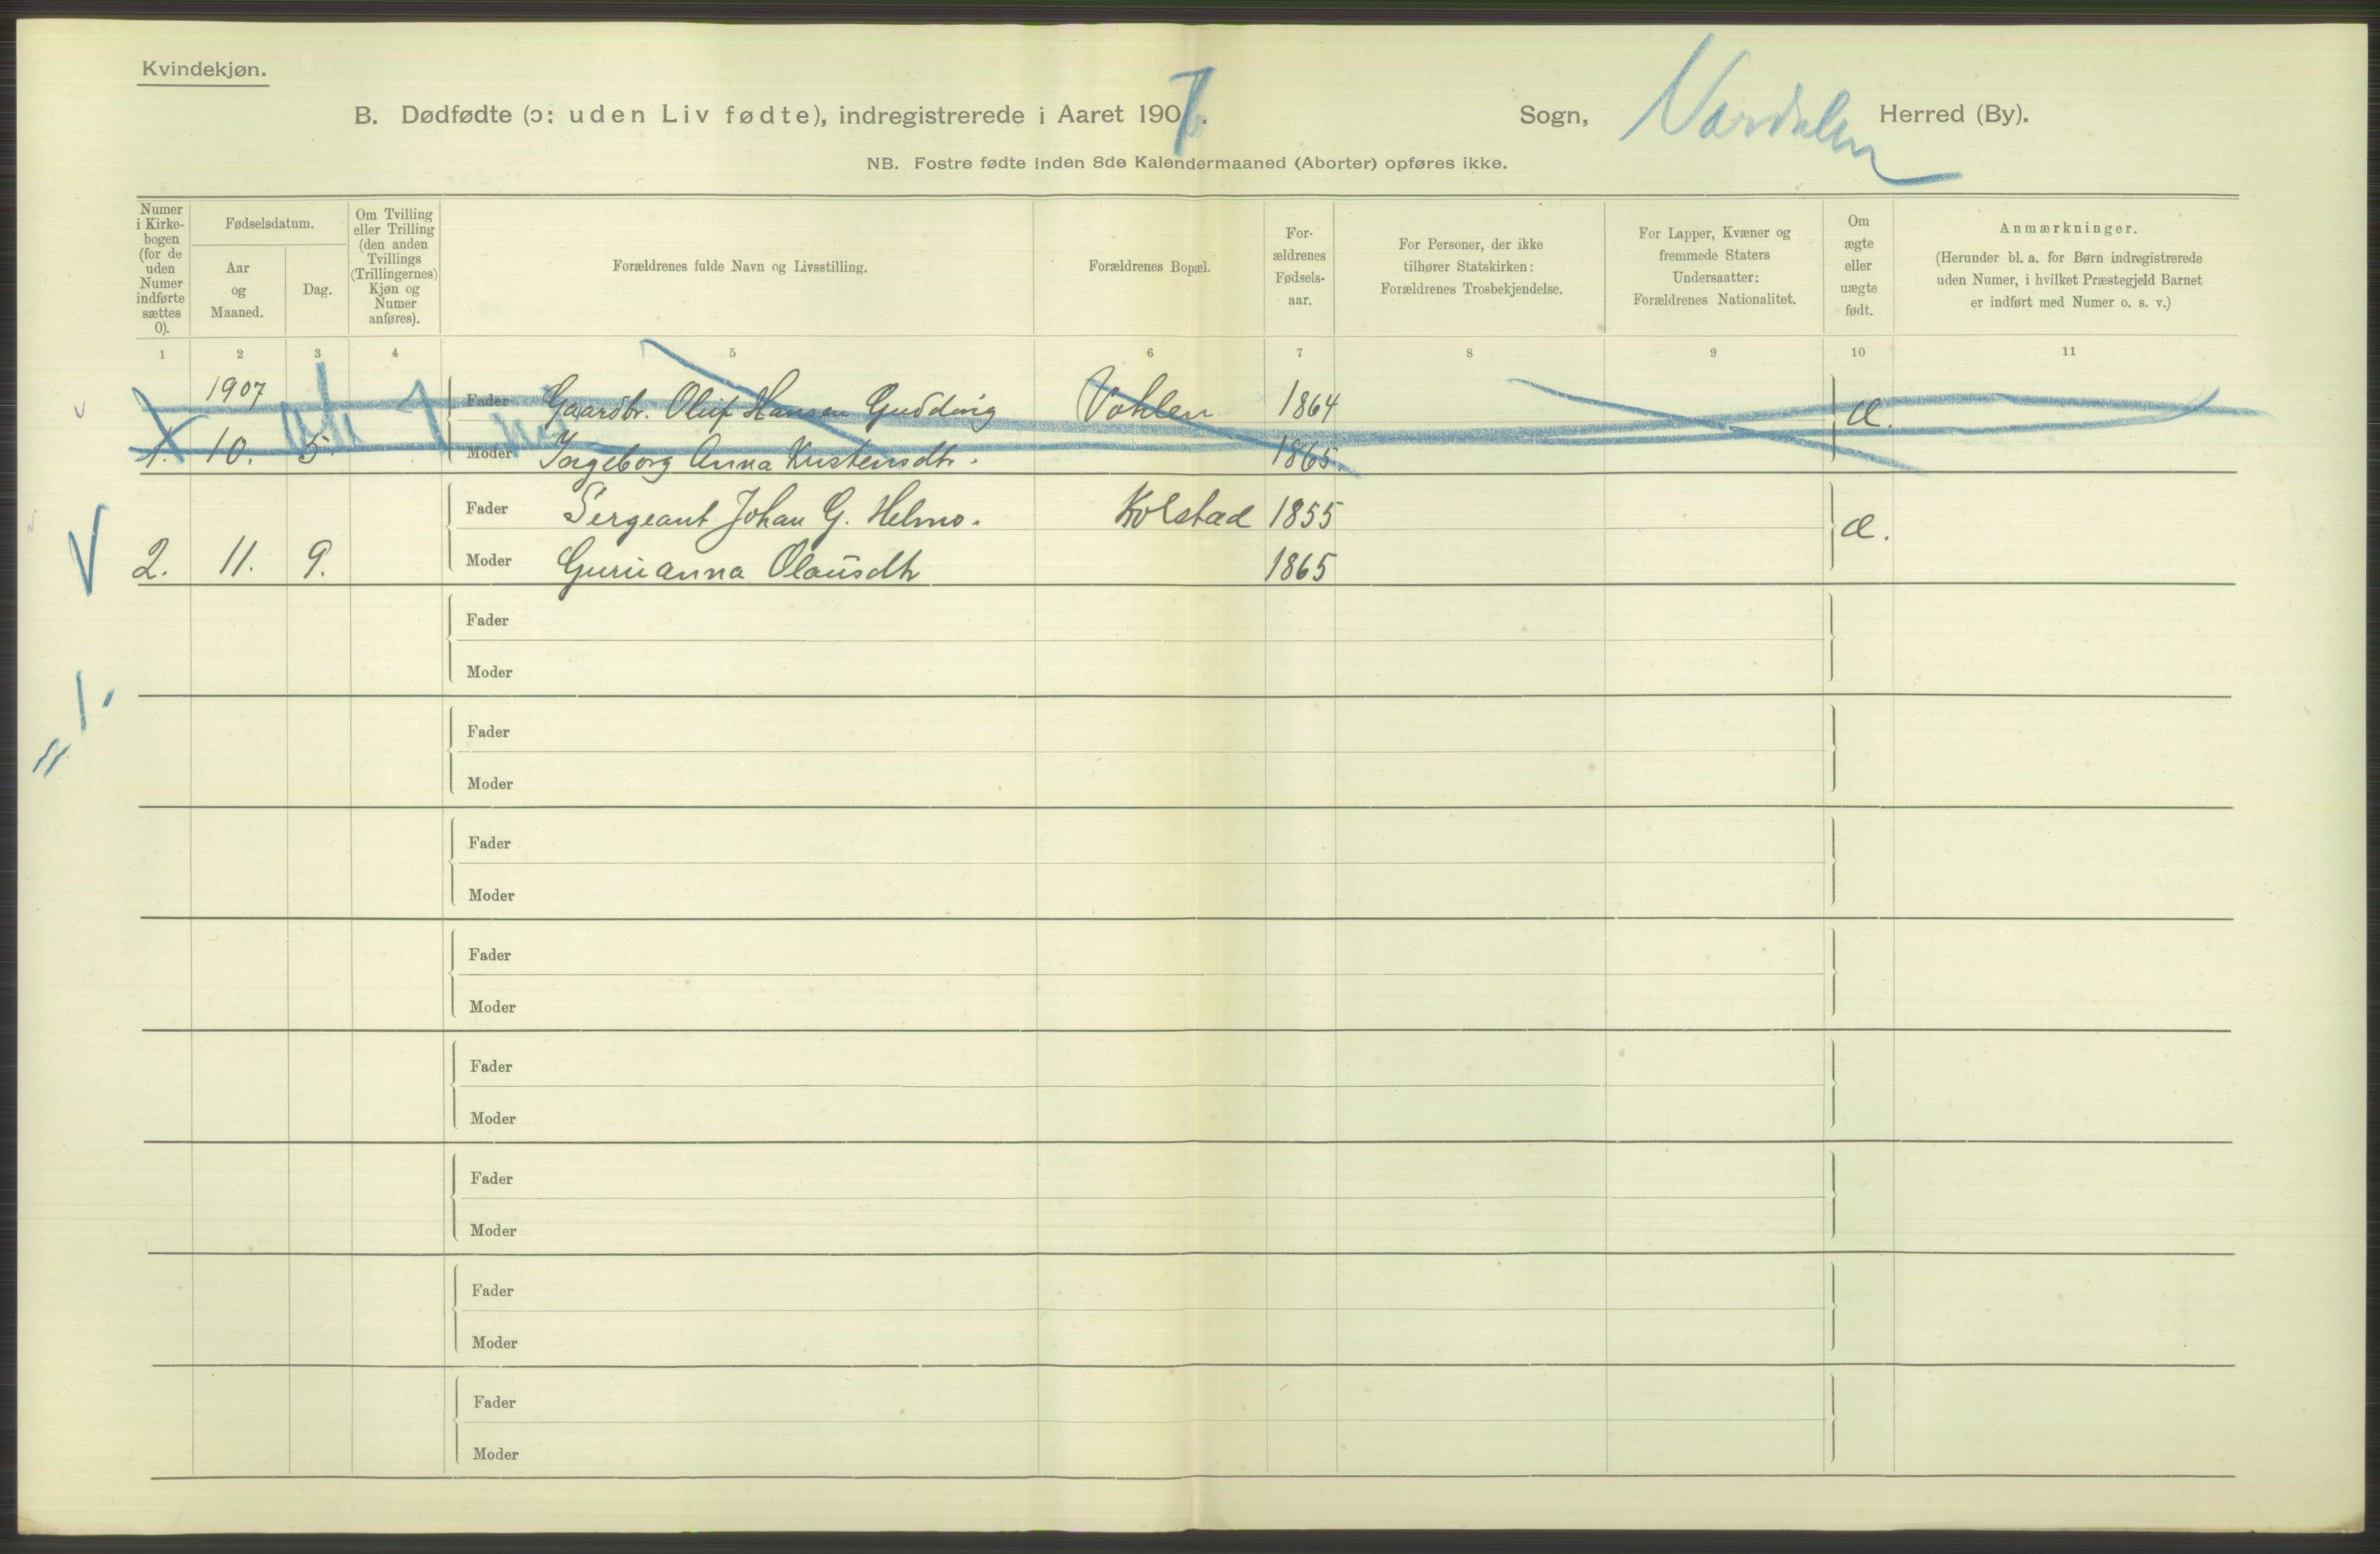 Kvindekjøn.
B. Dødfødte (ɔ: uden Liv fødte), indregistrerede i Aaret 1907. Sogn, Værdalen Herred (By).
NB. Fostre fødte inden 8de Kalendermaaned (Aborter) opføres ikke.
Numer i Kirke-bogen (for de uden Numer indførte sættes 0).
Fødselsdatum.
Aar og Maaned.
Dag.
Om Tvilling eller Trilling (den anden Tvillings (Trillingernes) Kjøn og Numer anføres).
Forældrenes fulde Navn og Livsstilling.
Forældrenes Bopæl.
For-ældrenes Fødsels-aar.
For Personer, der ikke tilhører Statskirken: Forældrenes Trosbekjendelse.
For Lapper, Kvæner og fremmede Staters Undersaatter: Forældrenes Nationalitet.
Om ægte eller uægte født.
Anmærkninger. (Herunder bl. a. for Børn indregistrerede uden Numer, i hvilket Præstegjeld Barnet er indført med Numer o. s. v.)
1 2 3 4 5 6 7 8 9 10 11
1907 Fader Gaardbr. Oluf Hansen Gudding Vohlen 1864 Æ.
1. 10. 5. Moder Ingeborg Anna Kristensdtr. 1865.
Fader Sergeant Johan G. Helmo. Kolstad 1855 Æ.
2. 11. 9. Moder Gurianna Olausdtr 1865
Fader
Moder
Fader
Moder
Fader
Moder
Fader
Moder
Fader
Moder
Fader
Moder
Fader
Moder
Fader
Moder